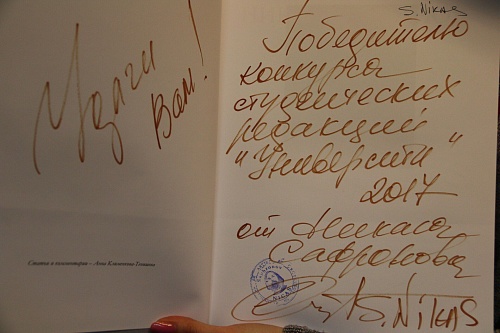 Удачи
Вам!
Статьи и комментарии – Анна Клименкова Глинина
S. Nikas
Победителю
конкурса
студенческих
редакций
"Университи"
2017
от Никаса
Сафронова
S. Nikas